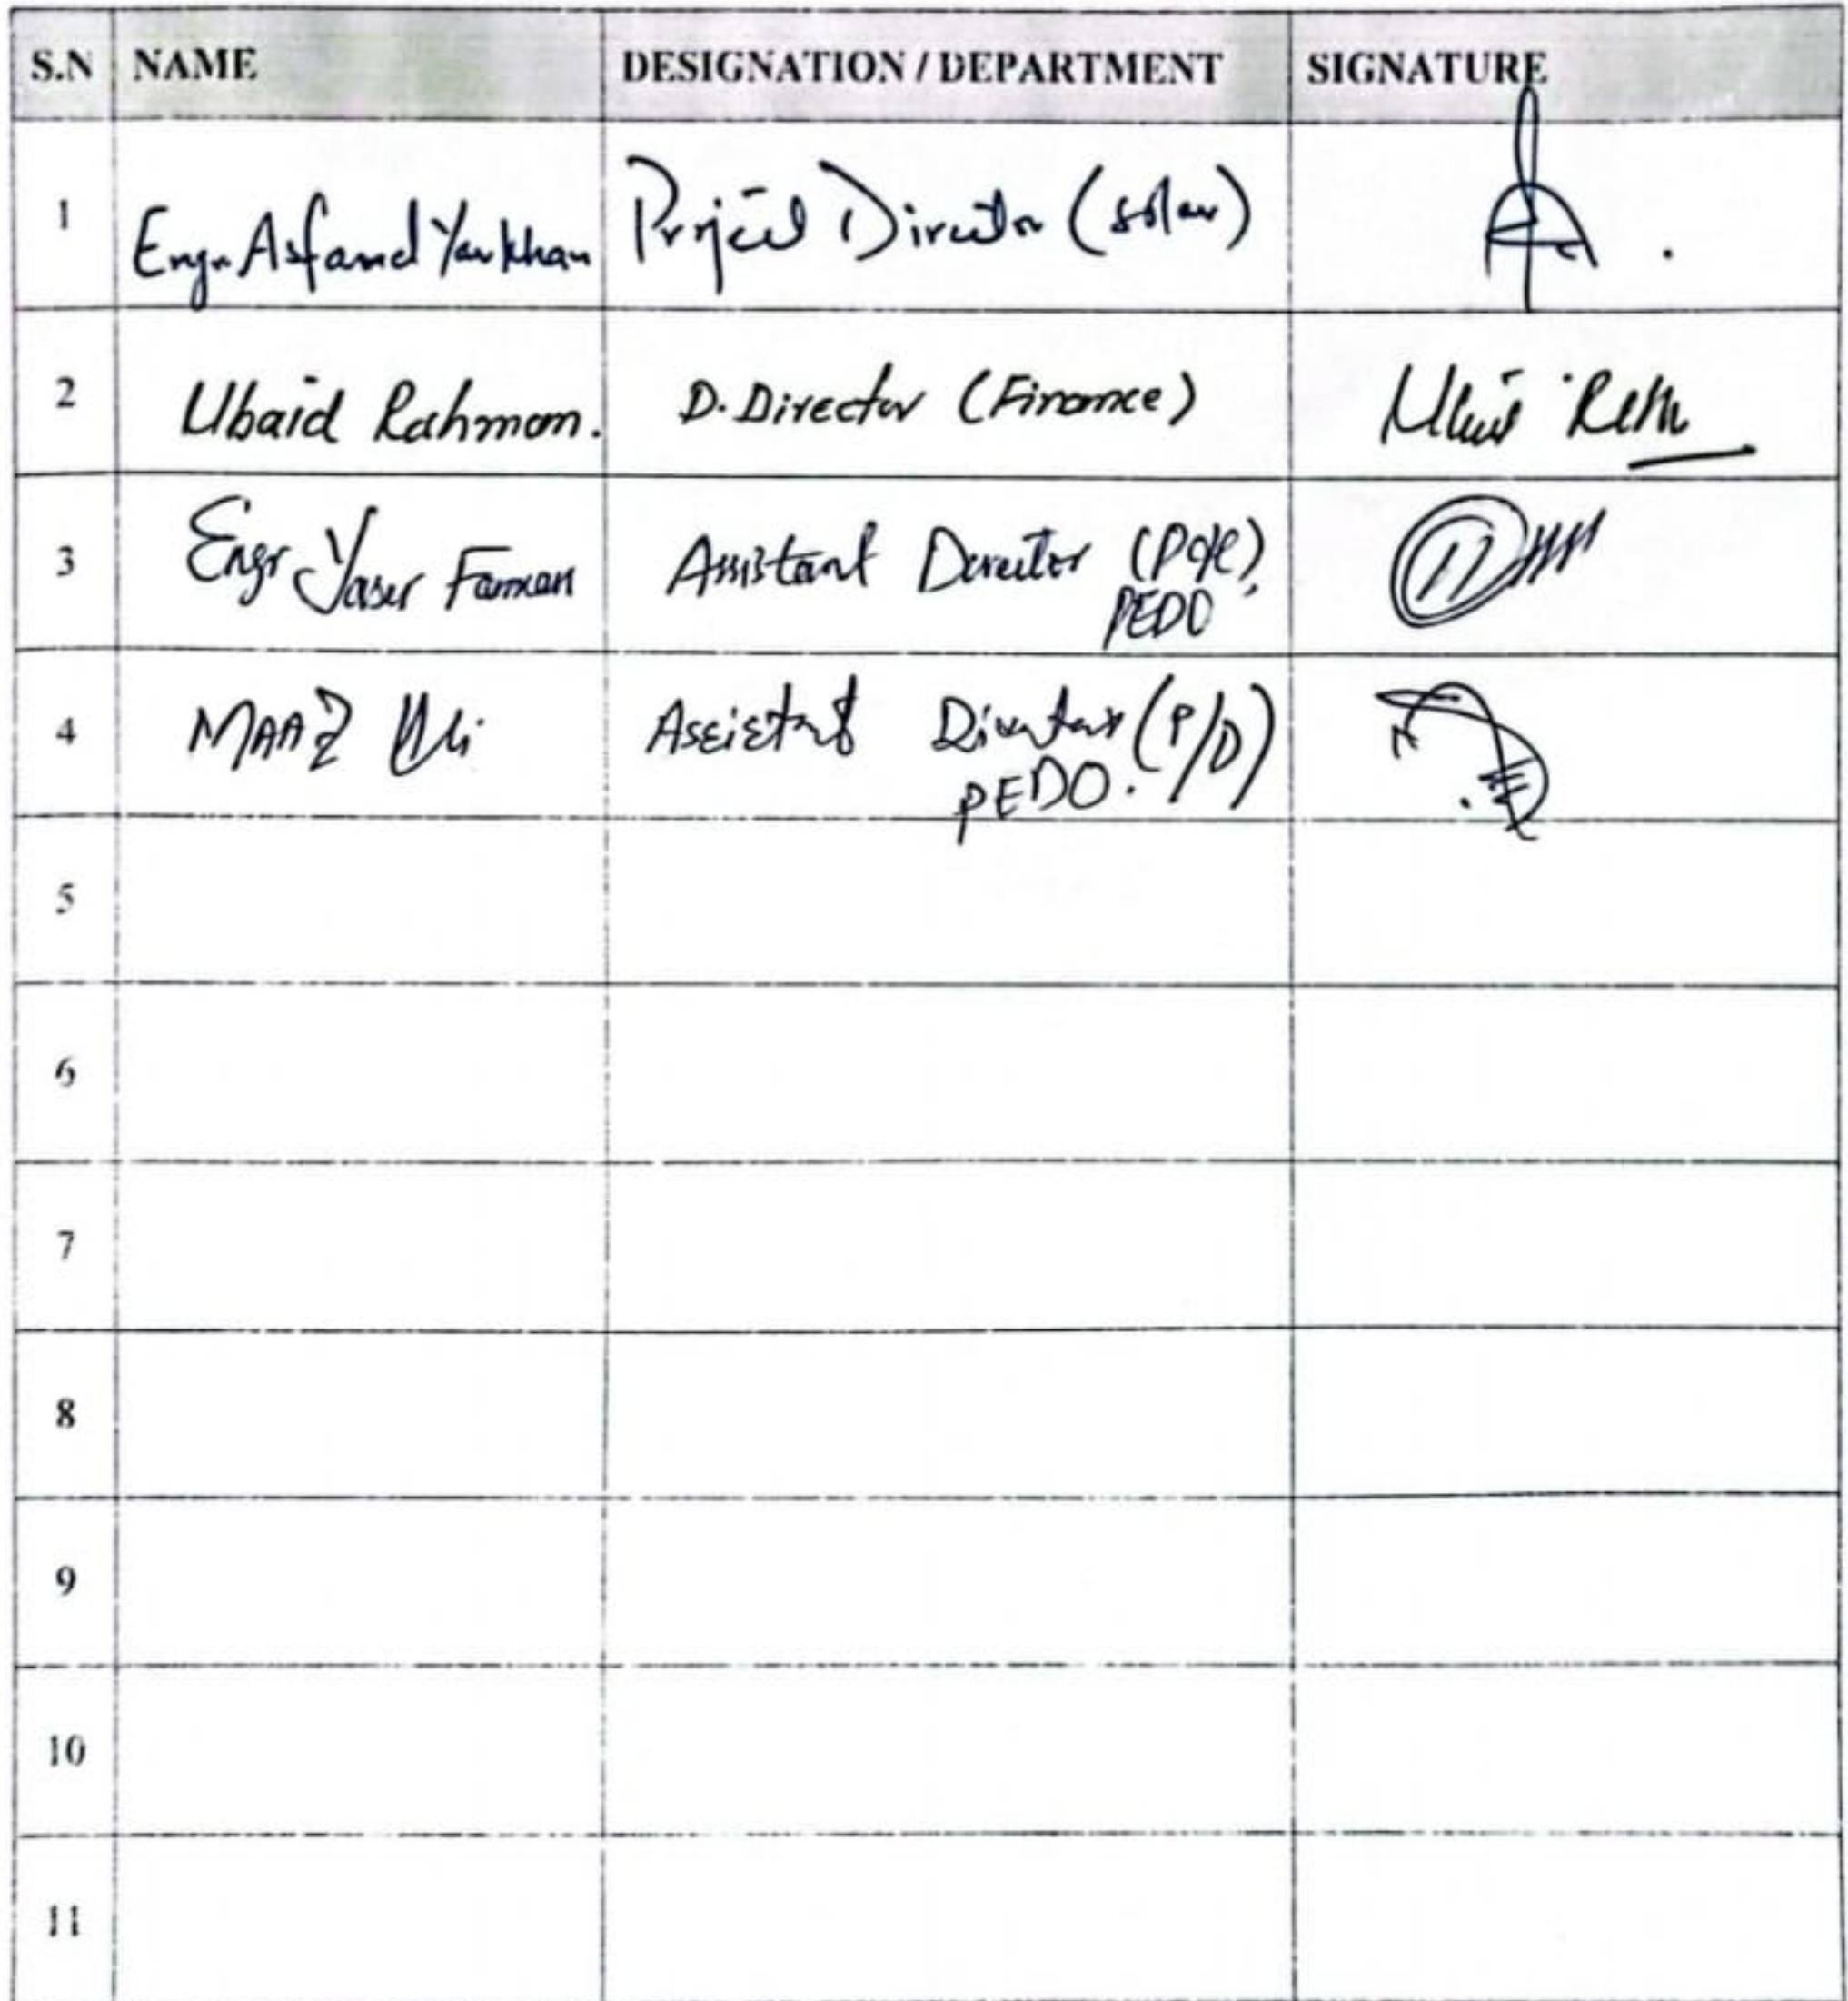 S.N NAME DESIGNATION / DEPARTMENT SIGNATURE
1 Engr. Asfand Yar Khan Project Director (Solar)
2 Ubaid Rahman. D. Director (Finance)
3 Engr Yaser Farman Assistant Director
PEDO
4 MAAZ Ali Assistant Director (P/D)
PEDO.
5
6
7
8
9
10
11